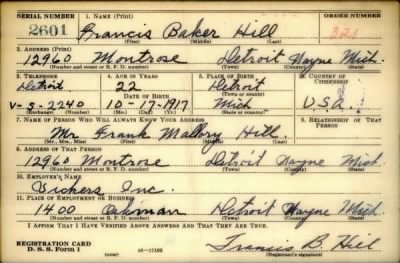 SERIAL NUMBER 1. NAME (Print) ORDER NUMBER
2601 Francis Baker Hill 321
(First) (Middle) (Last)
2. ADDRESS (Print)
12960 Montrose Detroit Wayne Mich.
(Number and street or R. F. D. number) (Town) (County) (State)
3. TELEPHONE 4. AGE IN YEARS 5. PLACE OF BIRTH 6. COUNTRY OF CITIZENSHIP
Detroit 22 Detroit
DATE OF BIRTH (Town or county)
V-3-2240 10-17-1917 Mich U.S.A.
(Exchange) (Number) (Mo.) (Day) (Yr.) (State or country)
7. NAME OF PERSON WHO WILL ALWAYS KNOW YOUR ADDRESS 8. RELATIONSHIP OF THAT PERSON
Mr. Frank Mallory Hill
(Mr., Mrs., Miss) (First) (Middle) (Last)
9. ADDRESS OF THAT PERSON
12960 Montrose Detroit Wayne Mich.
(Number and street or R. F. D. number) (Town) (County) (State)
10. EMPLOYER'S NAME
Vickers Inc.
11. PLACE OF EMPLOYMENT OR BUSINESS
1400 Oakman Detroit Wayne Mich.
(Number and street or R. F. D. number) (Town) (County) (State)
I AFFIRM THAT I HAVE VERIFIED ABOVE ANSWERS AND THAT THEY ARE TRUE.
REGISTRATION CARD
D. S. S. Form 1 16-17105 Francis B Hill
(over) (Registrant's signature)